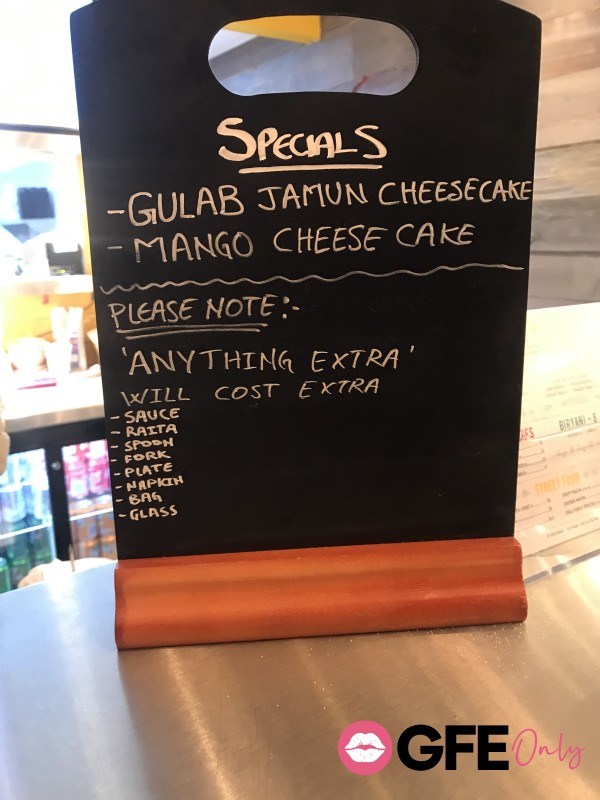 SPECIALS
-GULAB JAMUN CHEESECAKE
-MANGO CHEESE CAKE
PLEASE NOTE:-
'ANYTHING EXTRA'
WILL COST EXTRA
-SAUCE
-RAITA
-SPOON
FORK
-PLATE
-NAPKIN
-BAG
-GLASS
BIRYANI - 6
STREET FOOD
GFE Only